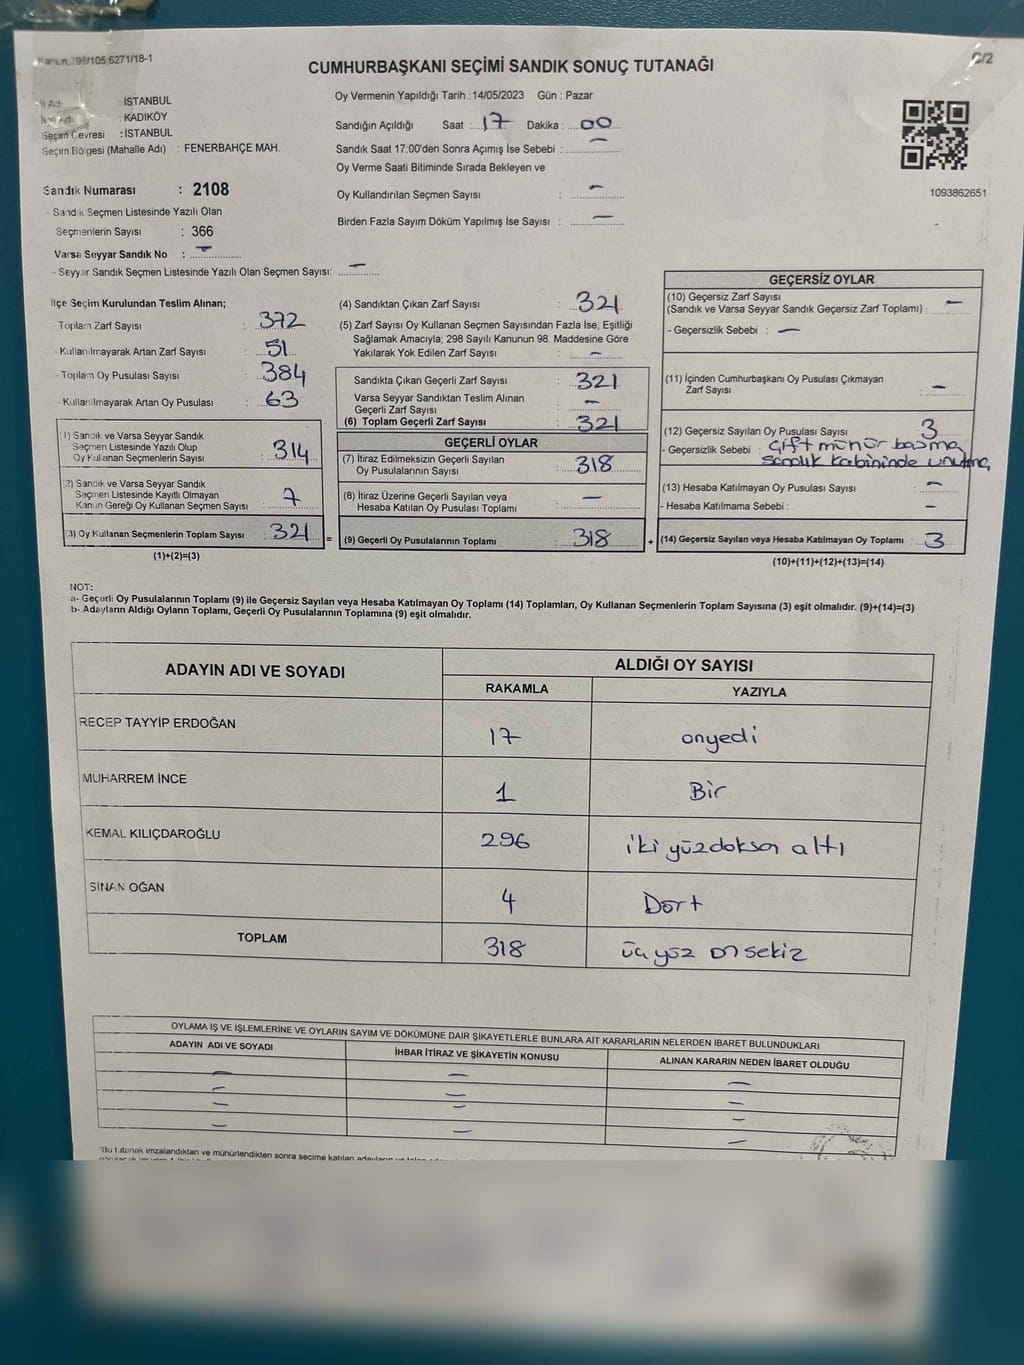 Kanun:298/105;6271/18-1
C/2
CUMHURBAŞKANI SEÇİMİ SANDIK SONUÇ TUTANAĞI
İl Adı : İSTANBUL
İlçe Adı : KADIKÖY
Seçim Çevresi : İSTANBUL
Seçim Bölgesi (Mahalle Adı) : FENERBAHÇE MAH.
Sandık Numarası : 2108
- Sandık Seçmen Listesinde Yazılı Olan
Seçmenlerin Sayısı : 366
Varsa Seyyar Sandık No : –
- Seyyar Sandık Seçmen Listesinde Yazılı Olan Seçmen Sayısı: –
Oy Vermenin Yapıldığı Tarih :14/05/2023 Gün : Pazar
Sandığın Açıldığı Saat : 17 Dakika : 00
Sandık Saat 17:00'den Sonra Açımış İse Sebebi : –
Oy Verme Saati Bitiminde Sırada Bekleyen ve
Oy Kullandırılan Seçmen Sayısı : –
Birden Fazla Sayım Döküm Yapılmış İse Sayısı : –
1093862651
İlçe Seçim Kurulundan Teslim Alınan;
- Toplam Zarf Sayısı : 372
- Kullanılmayarak Artan Zarf Sayısı : 51
- Toplam Oy Pusulası Sayısı : 384
- Kullanılmayarak Artan Oy Pusulası : 63
(1) Sandık ve Varsa Seyyar Sandık
Seçmen Listesinde Yazılı Olup
Oy Kullanan Seçmenlerin Sayısı : 314
(2) Sandık ve Varsa Seyyar Sandık
Seçmen Listesinde Kayıtlı Olmayan
Kanun Gereği Oy Kullanan Seçmen Sayısı : 7
(3) Oy Kullanan Seçmenlerin Toplam Sayısı : 321 =
(1)+(2)=(3)
(4) Sandıktan Çıkan Zarf Sayısı : 321
(5) Zarf Sayısı Oy Kullanan Seçmen Sayısından Fazla İse, Eşitliği
Sağlamak Amacıyla; 298 Sayılı Kanunun 98. Maddesine Göre
Yakılarak Yok Edilen Zarf Sayısı : –
Sandıkta Çıkan Geçerli Zarf Sayısı : 321
Varsa Seyyar Sandıktan Teslim Alınan
Geçerli Zarf Sayısı : –
(6) Toplam Geçerli Zarf Sayısı : 321
GEÇERLİ OYLAR
(7) İtiraz Edilmeksizin Geçerli Sayılan
Oy Pusulalarının Sayısı : 318
(8) İtiraz Üzerine Geçerli Sayılan veya
Hesaba Katılan Oy Pusulası Toplamı : –
(9) Geçerli Oy Pusulalarının Toplamı : 318 +
GEÇERSİZ OYLAR
(10) Geçersiz Zarf Sayısı
(Sandık ve Varsa Seyyar Sandık Geçersiz Zarf Toplamı) : –
- Geçersizlik Sebebi : –
(11) İçinden Cumhurbaşkanı Oy Pusulası Çıkmayan
Zarf Sayısı : –
(12) Geçersiz Sayılan Oy Pusulası Sayısı : 3
- Geçersizlik Sebebi : Çift mühür basma,
sandık kabininde unutma,
(13) Hesaba Katılmayan Oy Pusulası Sayısı : –
- Hesaba Katılmama Sebebi :
(14) Geçersiz Sayılan veya Hesaba Katılmayan Oy Toplamı : 3
(10)+(11)+(12)+(13)=(14)
NOT:
a- Geçerli Oy Pusulalarının Toplamı (9) ile Geçersiz Sayılan veya Hesaba Katılmayan Oy Toplamı (14) Toplamları, Oy Kullanan Seçmenlerin Toplam Sayısına (3) eşit olmalıdır. (9)+(14)=(3)
b- Adayların Aldığı Oyların Toplamı, Geçerli Oy Pusulalarının Toplamına (9) eşit olmalıdır.
ADAYIN ADI VE SOYADI ALDIĞI OY SAYISI
RAKAMLA YAZIYLA
RECEP TAYYİP ERDOĞAN 17 onyedi
MUHARREM İNCE 1 Bir
KEMAL KILIÇDAROĞLU 296 iki yüzdoksan altı
SİNAN OĞAN 4 Dört
TOPLAM 318 üç yüz on sekiz
OYLAMA İŞ VE İŞLEMLERİNE VE OYLARIN SAYIM VE DÖKÜMÜNE DAİR ŞİKAYETLERLE BUNLARA AİT KARARLARIN NELERDEN İBARET BULUNDUKLARI
ADAYIN ADI VE SOYADI İHBAR İTİRAZ VE ŞİKAYETİN KONUSU ALINAN KARARIN NEDEN İBARET OLDUĞU
– – –
– – –
– – –
– – –
"Bu tutanak imzalandıktan ve mühürlendikten sonra seçime katılan adayların